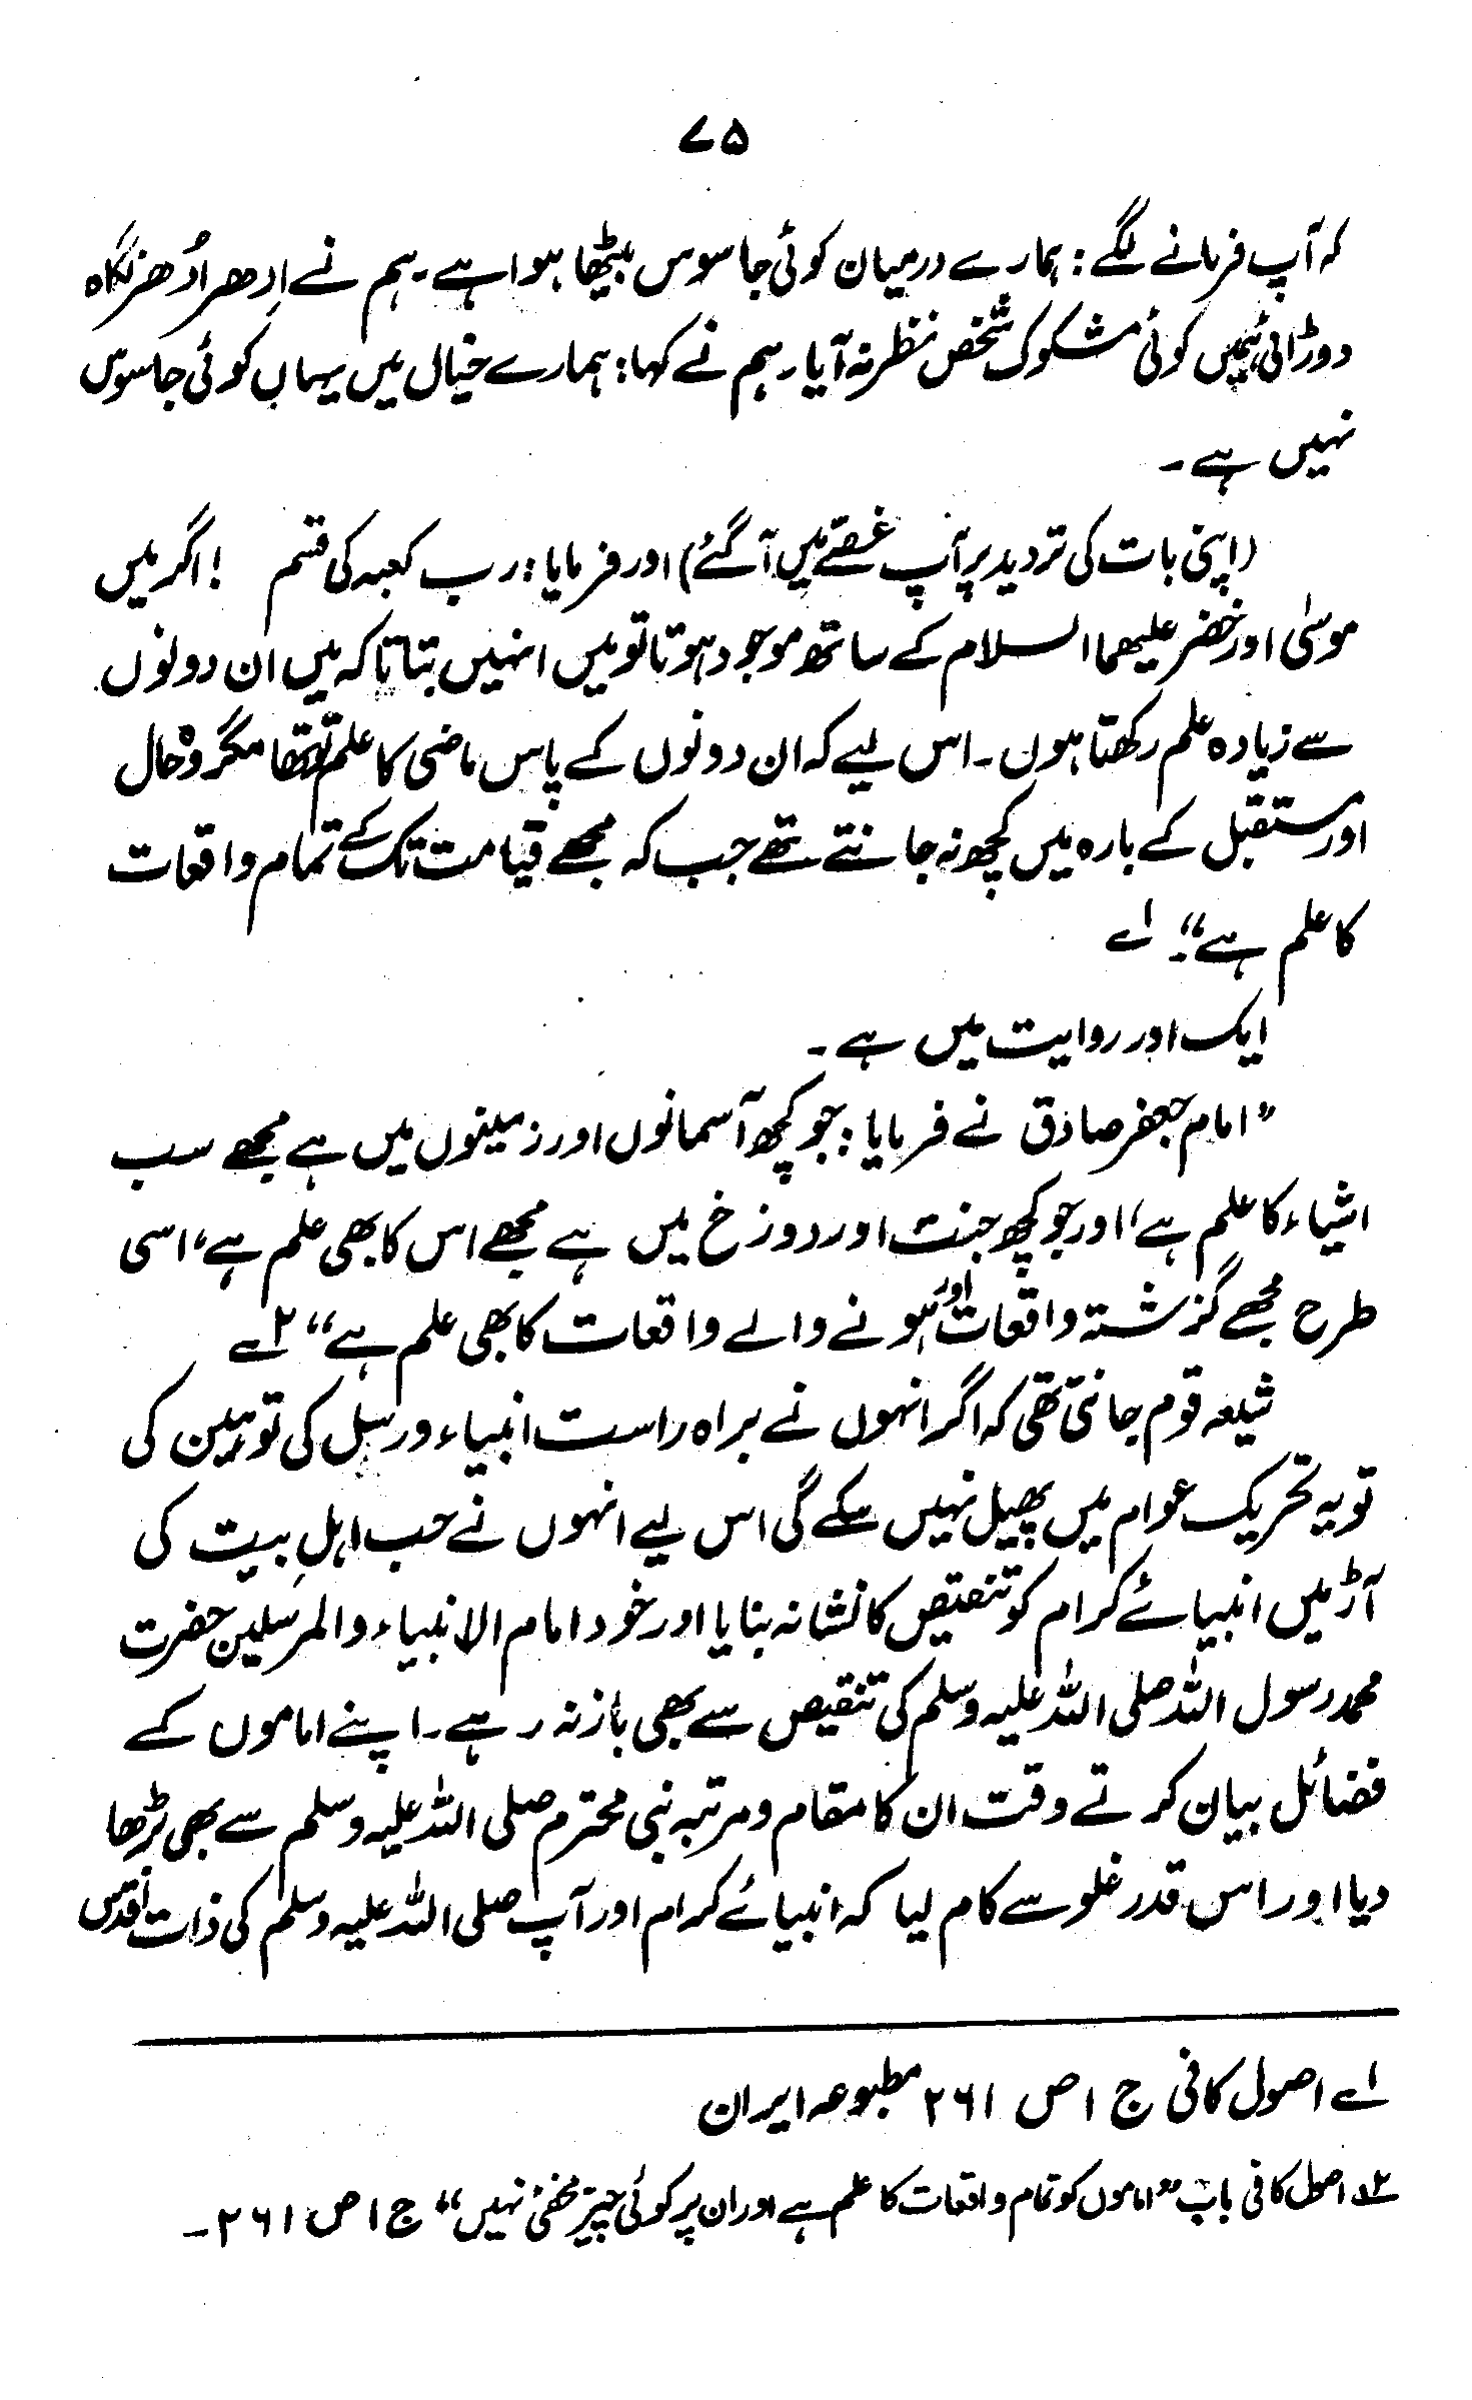 ۷۵
کہ آپ فرمانے لگے: ہمارے درمیان کوئی جاسوس بیٹھا ہوا ہے۔ ہم نے اِدھر اُدھر نگاہ
دوڑائی ہمیں کوئی مشکوک شخص نظر نہ آیا۔ ہم نے کہا: ہمارے خیال میں یہاں کوئی جاسوس
نہیں ہے۔
(اپنی بات کی تردید پر آپ غصّے میں آگئے) اور فرمایا: رب کعبہ کی قسم ! اگر میں
موسیٰ اور خضر علیھما السلام کے ساتھ موجود ہوتا تو میں انہیں بتاتا کہ میں ان دونوں
سے زیادہ علم رکھتا ہوں۔ اس لیے کہ ان دونوں کے پاس ماضی کا علم تو تھا مگر وہ حال
اور مستقبل کے بارہ میں کچھ نہ جانتے تھے جب کہ مجھے قیامت تک کے تمام واقعات
کا علم ہے“۔ ۱ے
ایک اور روایت میں ہے۔
”امام جعفر صادق نے فرمایا: جو کچھ آسمانوں اور زمینوں میں ہے مجھے سب
اشیاء کا علم ہے، اور جو کچھ جنت اور دوزخ میں ہے مجھے اس کا بھی علم ہے، اسی
طرح مجھے گزشتہ واقعات اور ہونے والے واقعات کا بھی علم ہے“ ۲ے
شیعہ قوم جانتی تھی کہ اگر انہوں نے براہ راست انبیاء ورسل کی توہین کی
تو یہ تحریک عوام میں پھیل نہیں سکے گی اس لیے انہوں نے حب اہلِ بیت کی
آڑ میں انبیائے کرام کو تنقیص کا نشانہ بنایا اور خود امام الانبیاء والمرسلین حضرت
محمد رسول اللہ صلی اللہ علیہ وسلم کی تنقیص سے بھی باز نہ رہے۔ اپنے اماموں کے
فضائل بیان کرتے وقت ان کا مقام و مرتبہ نبی محترم صلی اللہ علیہ وسلم سے بھی بڑھا
دیا اور اس قدر غلو سے کام لیا کہ انبیائے کرام اور آپ صلی اللہ علیہ وسلم کی ذات اقدس
۱ے اصول کافی ج ۱ ص ۲۶۱ مطبوعہ ایران
۲ے اصول کافی باب ”اماموں کو تمام واقعات کا علم ہے اور ان پر کوئی چیز مخفی نہیں“ ج ۱ ص ۲۶۱۔